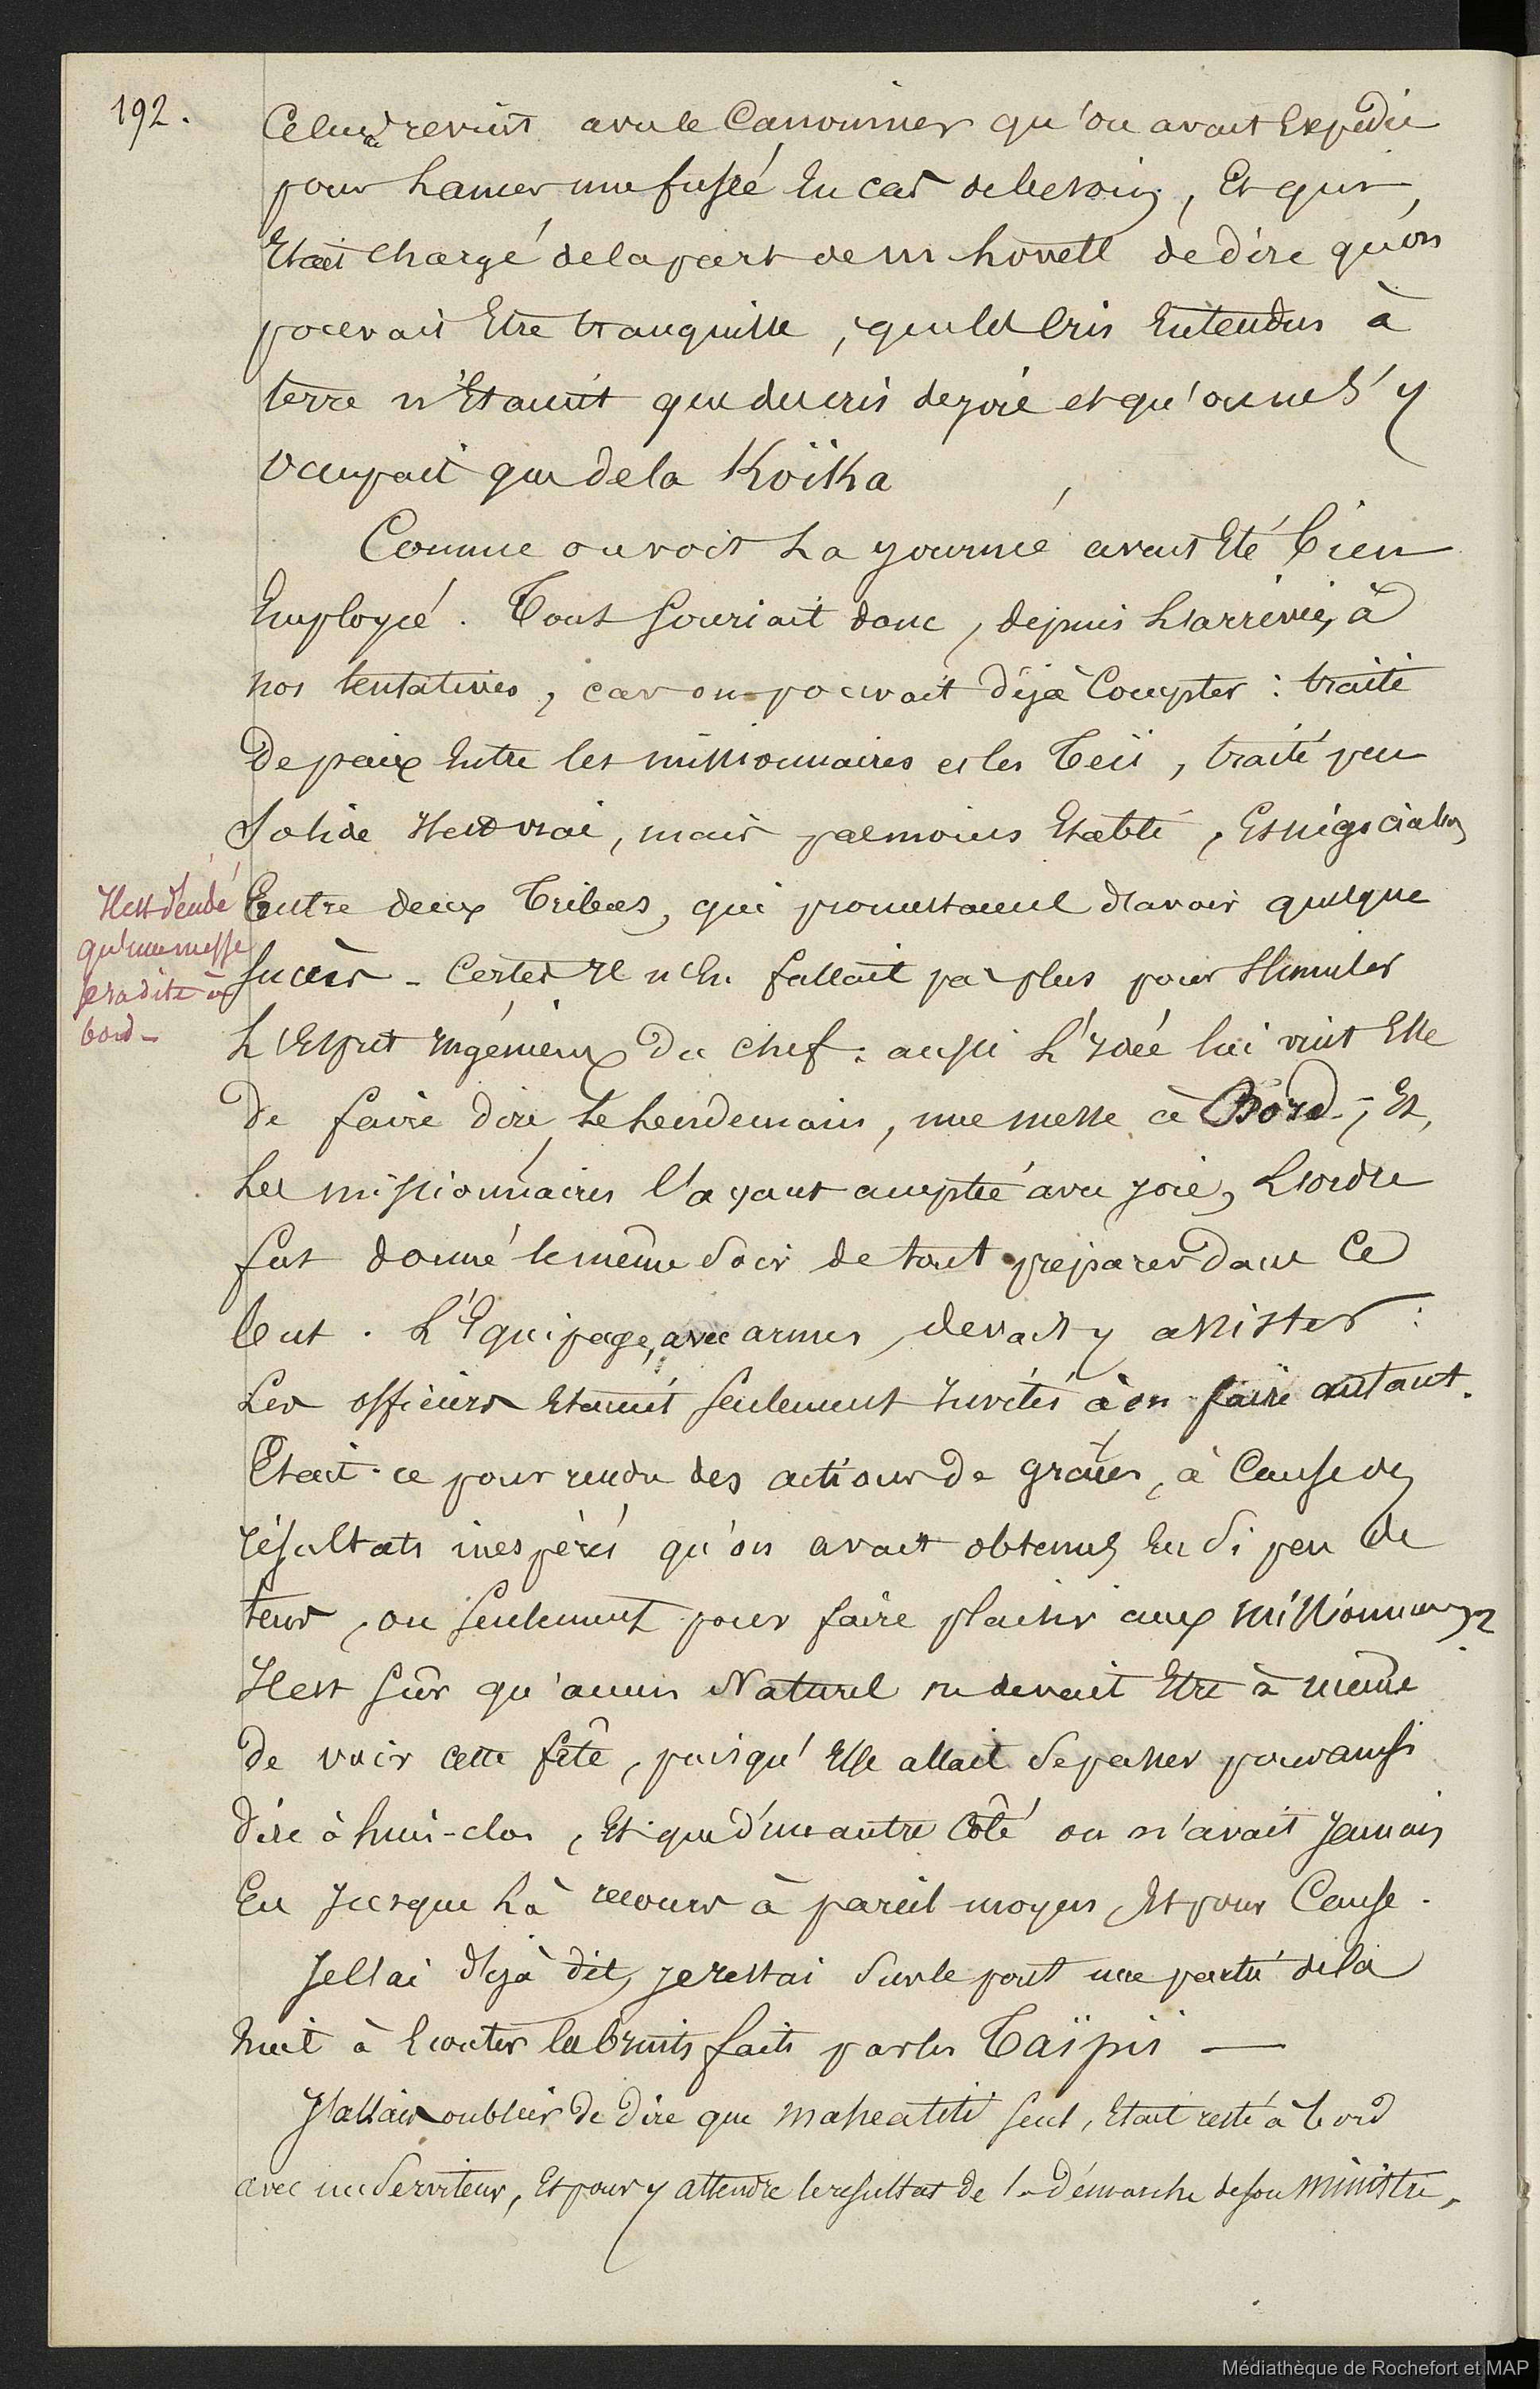 192.
Celui ci revint avec le Canonnier qu'on avait Expédié
pour Lancer une fusée En cas de besoin, Et qui,
Etait chargé de la part de m howell de dire qu'on
pouvait Etre tranquille, que les Cris Entendus à
terre n'Etaient que des cris de joie et qu'on ne s'y
occupait que de la Koïka
Comme on voit La journée avait Eté bien
Employée. Tout Souriait donc, depuis L'arrivée, à
nos tentatives, car on pouvait déjà Compter : traité
De paix Entre les missionnaires et les Teii, traité peu
Solide Il est vrai, mais Etabli, Et négociation
Entre deux Tribus, qui promettaient d'avoir quelque
Succès - Certes Il n'En fallait pas plus pour Stimuler
L'Esprit Ingénieux Du Chef : aussi L'Idée lui vint Elle
De faire dire, le Lendemain, une messe à Bord ; Et,
Les missionnaires l'ayant acceptée avec joie, L'ordre
fut donné le même Soir de tout préparer dans Ce
but. L'Equipage, avec armes, devait y assister :
Les officiers Etaient Seulement Invités à en faire autant.
Etait-ce pour rendre des actions de grâces, à Cause des
résultats inespérés qu'on avait obtenus En Si peu de
tems, ou Seulement pour faire plaisir aux missionnaires ?
Il est Sûr qu'aucun Naturel ne devait Etre à même
de voir cette fête, puisqu'Elle allait Se passer pour ainsi
dire à huis-clos, Et que d'une autre Côté on n'avait Jamais
Eu Jusque Là recours à pareil moyen, Et pour Cause.
Je l'ai déjà dit, je restai Sur le pont une partie de la
Nuit à Ecouter les bruits faits par les Taïpis —
J'allais oublier De Dire que maheatité seul, Etait resté à bord
avec un Serviteur, Et pour y attendre le résultat de la Démarche de son ministre,
Il est décidé
qu'une messe
sera dite à
bord -
Médiathèque de Rochefort et MAP